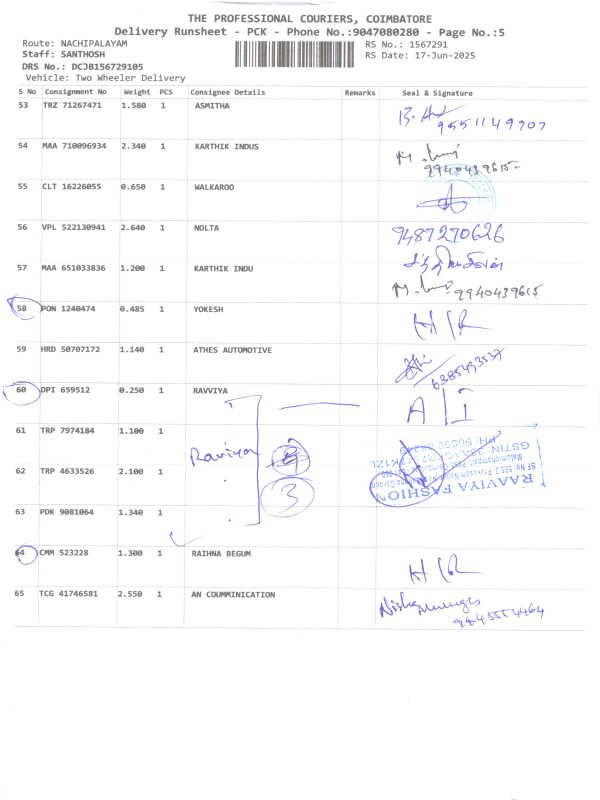 THE PROFESSIONAL COURIERS, COIMBATORE
Delivery Runsheet - PCK - Phone No.:9047080280 - Page No.:5
Route: NACHIPALAYAM
RS No.: 1567291
Staff: SANTHOSH
RS Date: 17-Jun-2025
DRS No.: DCJB156729105
Vehicle: Two Wheeler Delivery
S No Consignment No Weight PCS Consignee Details Remarks Seal & Signature
53 TRZ 71267471 1.580 1 ASMITHA
9551149907
54 MAA 710096934 2.340 1 KARTHIK INDUS
9940439615
55 CLT 16226055 0.650 1 WALKAROO
56 VPL 522130941 2.640 1 NOLTA 9487270626
57 MAA 651033836 1.200 1 KARTHIK INDU
9940439615
58 PON 1240474 0.485 1 YOKESH
59 HRD 50707172 1.140 1 ATHES AUTOMOTIVE
6385493537
60 DPI 659512 0.250 1 RAVVIYA
61 TRP 7974184 1.100 1
Raviya
62 TRP 4633526 2.100 1
3
RAAVIYA FASHION
63 PDK 9081064 1.340 1
64 CMM 523228 1.300 1 RAIHNA BEGUM
65 TCG 41746581 2.550 1 AN COUMMINICATION